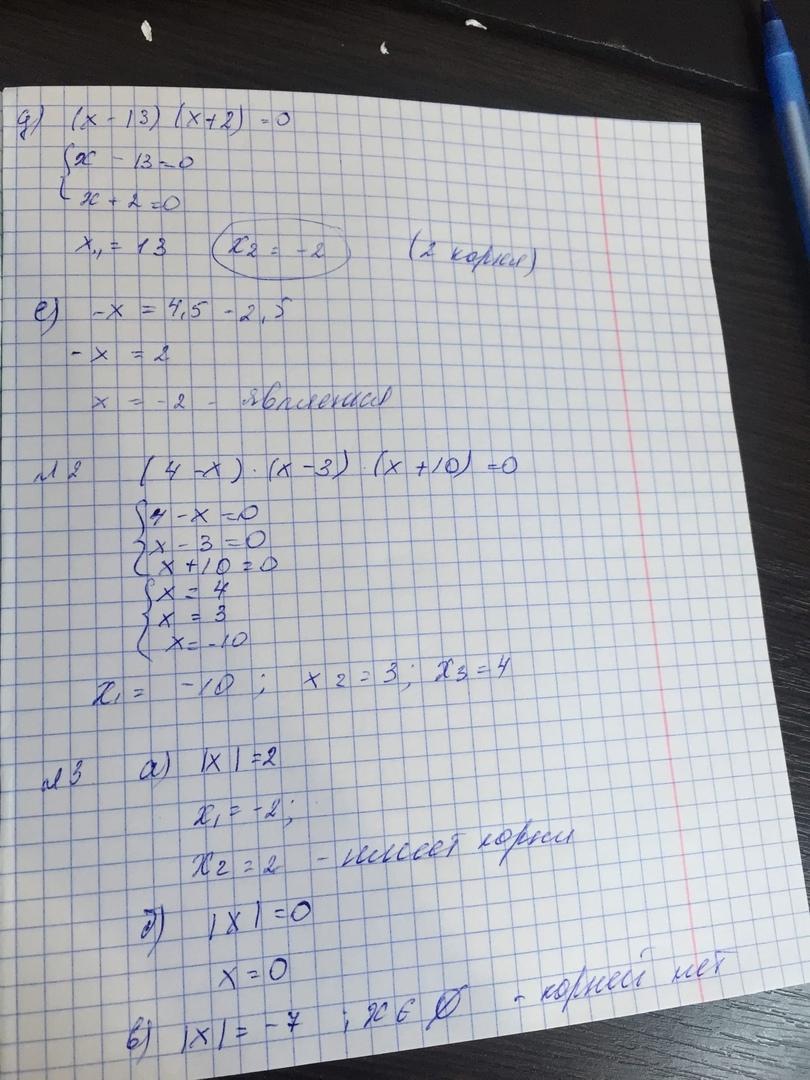 д) (x - 13) (x+2) = 0
{ x - 13 = 0
x + 2 = 0
x₁ = 13 x₂ = -2 (2 корня)
е) -x = 4,5 - 2,5
-x = 2
x = -2 - является
№2 (4-x) · (x-3) · (x+10) = 0
{ 4 - x = 0
x - 3 = 0
x + 10 = 0
{ x = 4
x = 3
x = -10
x₁ = -10 ; x₂ = 3; x₃ = 4
№3 а) |x| = 2
x₁ = -2;
x₂ = 2 - имеет корни
б) |x| = 0
x = 0
в) |x| = -7 ; x ∈ ∅ - корней нет